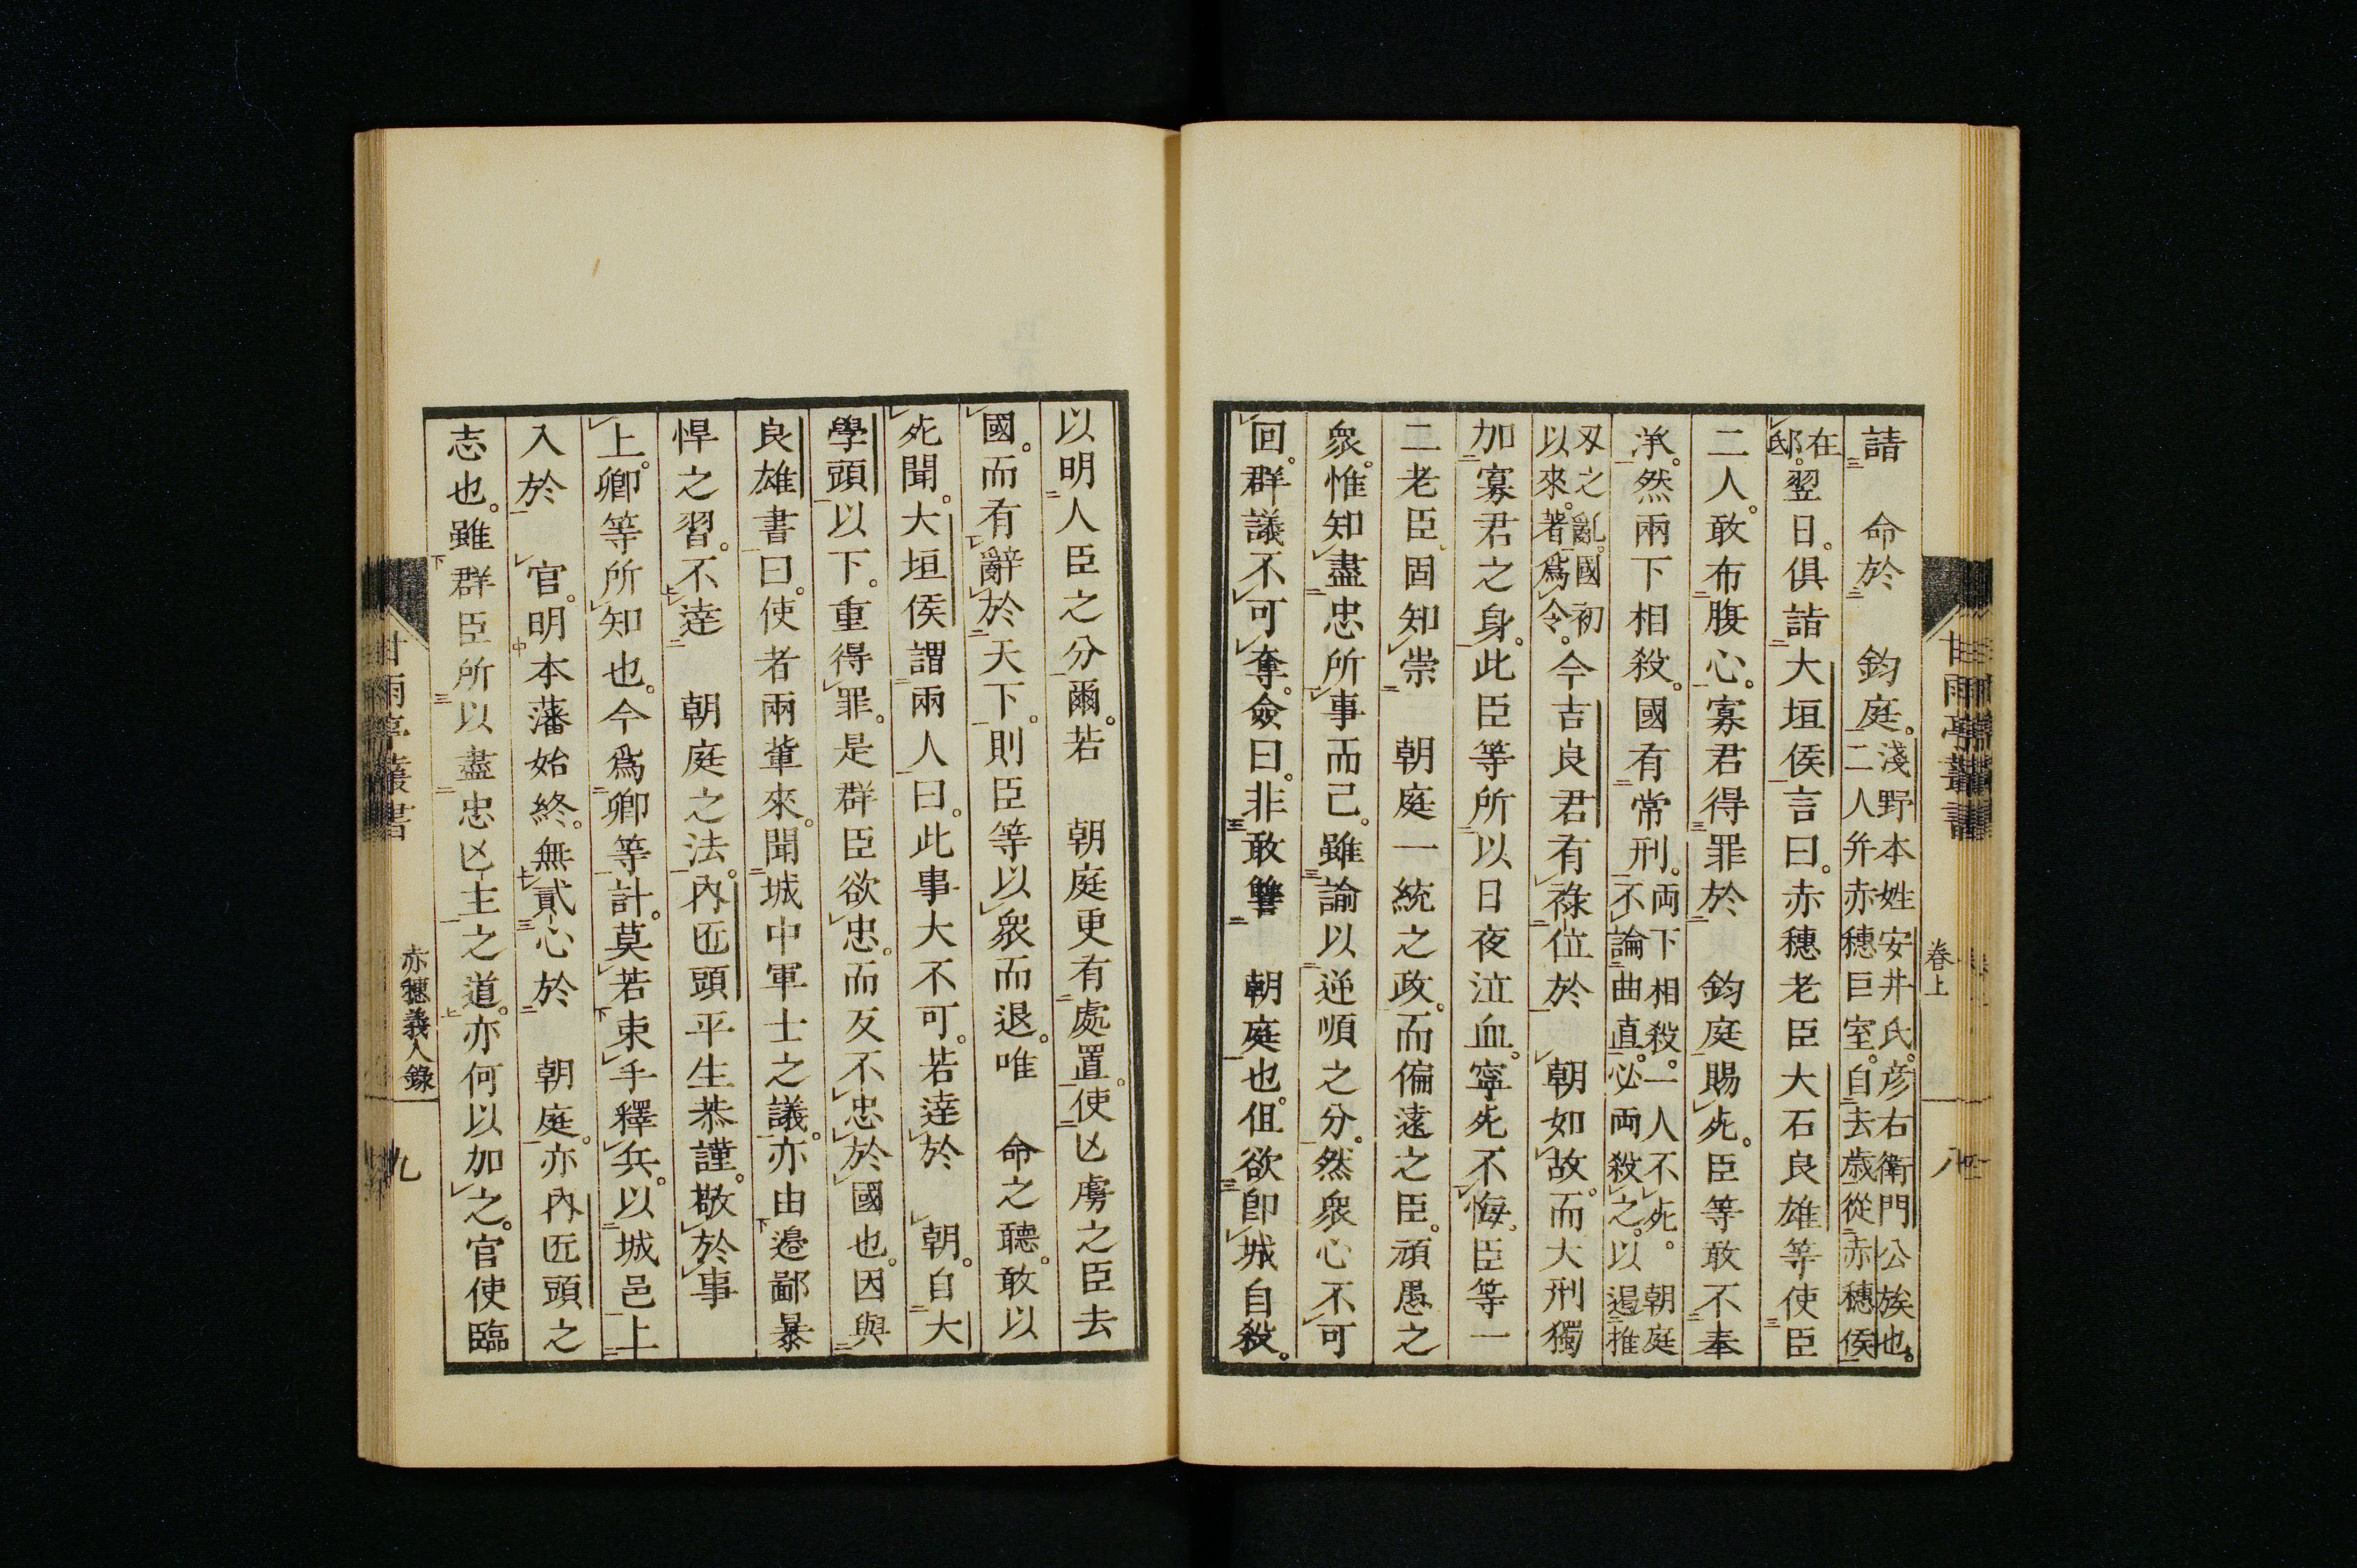 請　命於　鈞庭。淺野本姓安井氏。彦右衛門公族也。
二人弁赤穗巨室。自去歳從赤穗侯
在
邸。翌日。俱詣大垣侯言曰。赤穗老臣大石良雄等使臣
二人。敢布腹心。寡君得罪於　鈞庭賜死。臣等敢不奉
承。然兩下相殺。國有常刑。両下相殺。一人不死。朝庭
不論曲直。必両殺之。以遏推
刄之亂。國初
以來。著爲令。今吉良君有祿位於　朝如故。而大刑獨
加寡君之身。此臣等所以日夜泣血。寧死不悔。臣等一
二老臣固知崇　朝庭一統之政。而偏遠之臣。頑愚之
衆。惟知盡忠所事而已。雖諭以逆順之分。然衆心不可
回。群議不可奪。僉曰。非敢讐　朝庭也。但欲卽城自殺。
以明人臣之分爾。若　朝庭更有處置。使凶虜之臣去
國。而有辭於天下。則臣等以衆而退。唯　命之聽。敢以
死聞。大垣侯謂兩人曰。此事大不可。若達於　朝。自大
學頭以下。重得罪。是群臣欲忠。而反不忠於國也。因與
良雄書曰。使者兩輩來。聞城中軍士之議。亦由邉鄙暴
悍之習。不達　朝庭之法。內匠頭平生恭謹。敬於事
上。卿等所知也。今爲卿等計。莫若束手釋兵。以城邑上
入於　官。明本藩始終。無貳心於　朝庭。亦內匠頭之
志也。雖群臣所以盡忠凶主之道。亦何以加之。官使臨
甘雨亭叢書
卷上
八
甘雨亭叢書
赤穗義人錄
九